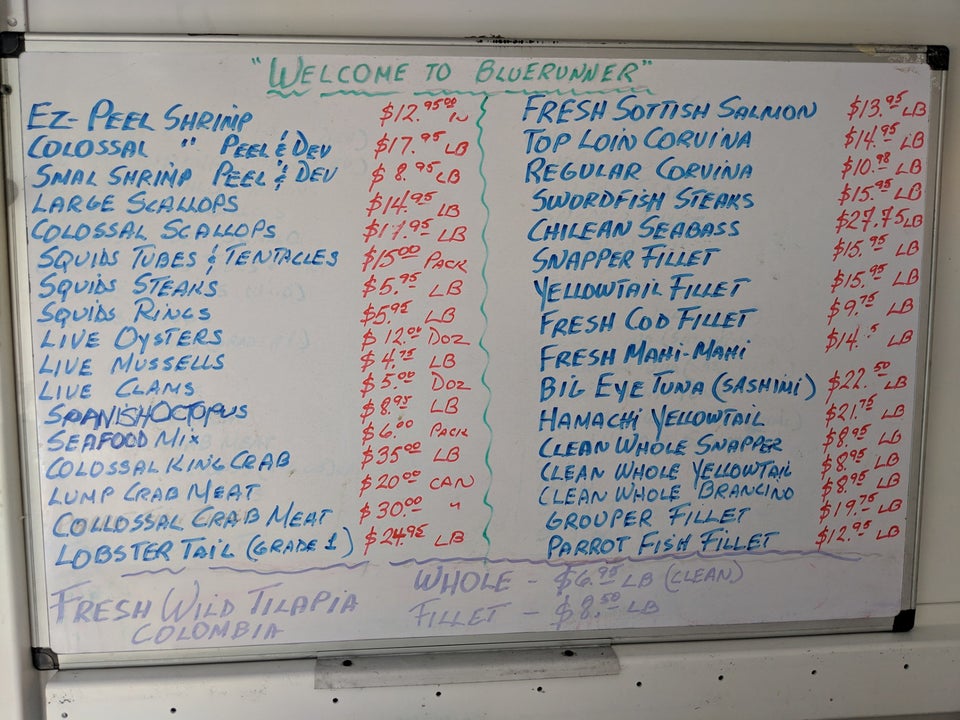 "WELCOME TO BLUERUNNER"
EZ-PEEL SHRIMP $12.95
COLOSSAL " PEEL & DEV $17.95 LB
SMAL SHRIMP PEEL & DEV $8.95 LB
LARGE SCALLOPS $14.95 LB
COLOSSAL SCALLOPS $17.95 LB
SQUIDS TUBES & TENTACLES $15.00 PACK
SQUIDS STEAKS $5.95 LB
SQUIDS RINGS $5.95 LB
LIVE OYSTERS $12.00 DOZ
LIVE MUSSELLS $4.75 LB
LIVE CLAMS $5.00 DOZ
SPANISH OCTOPUS $8.95 LB
SEAFOOD MIX $6.00 PACK
COLOSSAL KING CRAB $35.00 LB
LUMP CRAB MEAT $20.00 CAN
COLLOSSAL CRAB MEAT $30.00 "
LOBSTER TAIL (GRADE 1) $24.95 LB
FRESH SOTTISH SALMON $13.95 LB
TOP LOIN CORVINA $14.95 LB
REGULAR CORVINA $10.98 LB
SWORDFISH STEAKS $15.95 LB
CHILEAN SEABASS $27.75 LB
SNAPPER FILLET $15.95 LB
YELLOWTAIL FILLET $15.95 LB
FRESH COD FILLET $9.75 LB
FRESH MAHI-MAHI LB
BIG EYE TUNA (SASHIMI) $22.50 LB
HAMACHI YELLOWTAIL $21.75 LB
CLEAN WHOLE SNAPPER $8.95 LB
CLEAN WHOLE YELLOWTAIL $8.95 LB
CLEAN WHOLE BRANCINO $8.95 LB
GROUPER FILLET $19.75 LB
PARROT FISH FILLET $12.95 LB
FRESH WILD TILAPIA
COLOMBIA
WHOLE - $6.95 LB (CLEAN)
FILLET - $8.50 LB